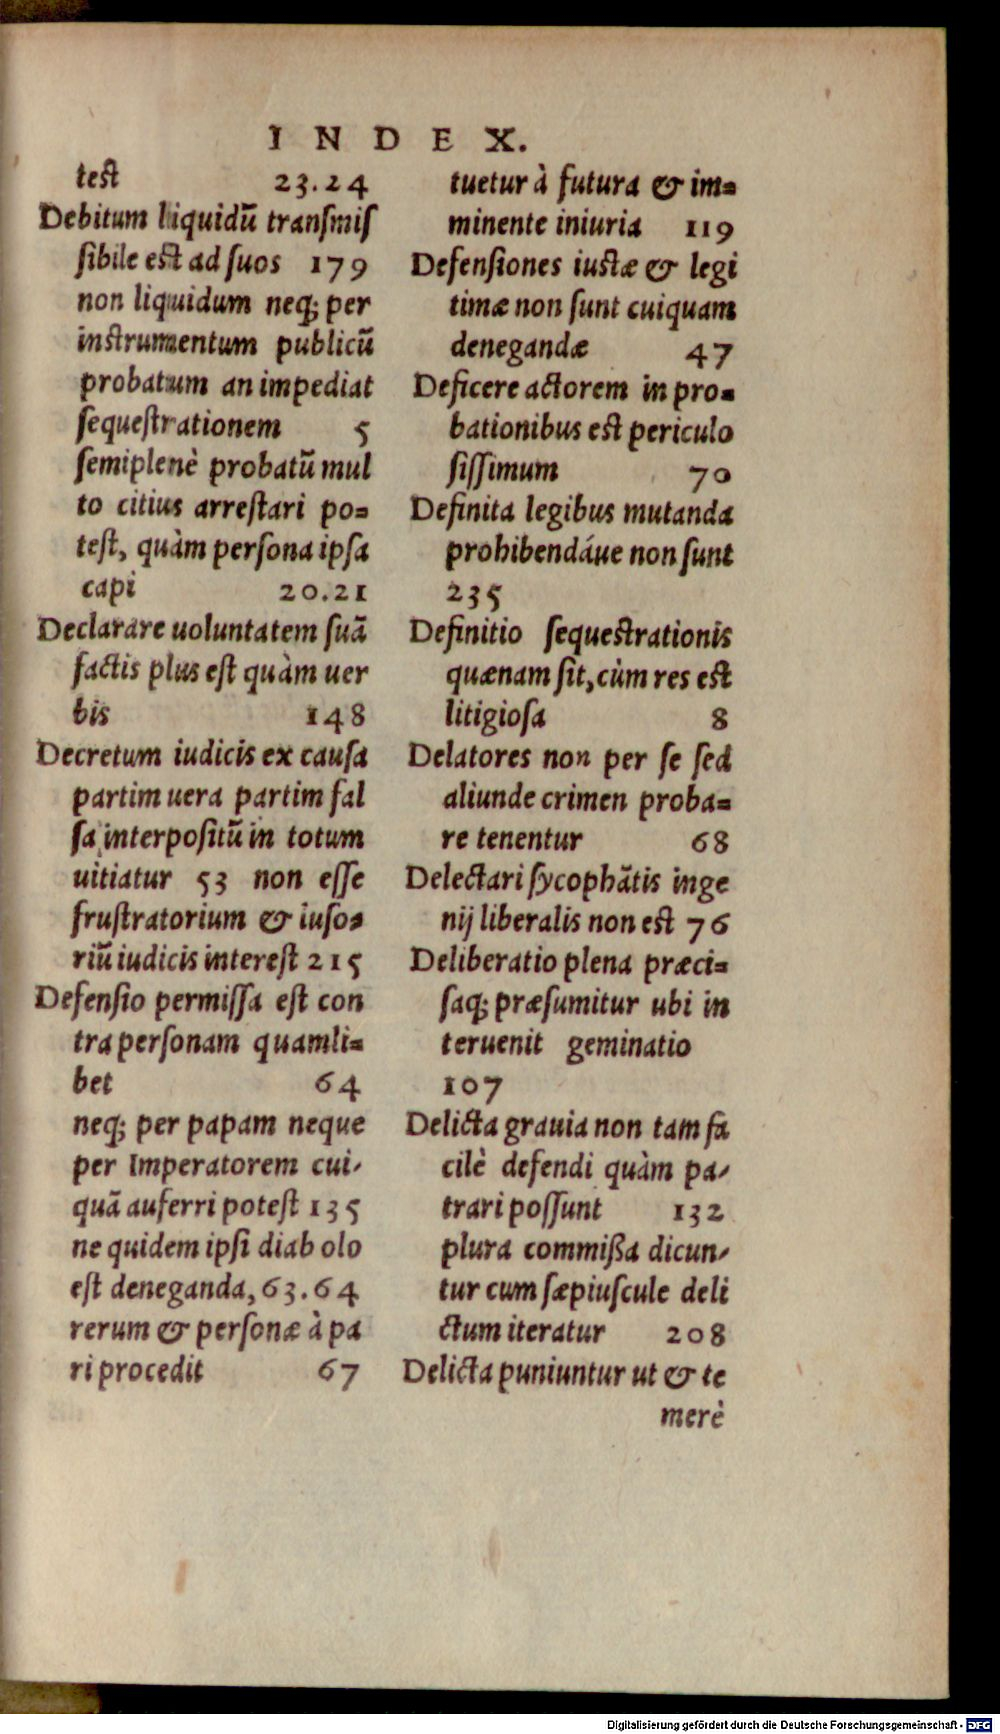 INDEX.
test 23.24
Debitum liquidũ transmiſ
ſibile est ad ſuos 179
non liquidum neq; per
instrumentum publicũ
probatum an impediat
ſequeſtrationem 5
ſemiplenè probatũ mul
to citius arreſtari po=
teſt, quàm perſona ipſa
capi 20.21
Declarare uoluntatem ſuã
factis plus eſt quàm uer
bis 148
Decretum iudicis ex cauſa
partim uera partim fal
ſa interpoſitũ in totum
uitiatur 53 non eſſe
fruſtratorium & iuſo=
riũ iudicis intereſt 215
Defenſio permiſſa eſt con
tra perſonam quamli=
bet 64
neq; per papam neque
per Imperatorem cui-
quã auferri poteſt 135
ne quidem ipſi diab olo
eſt deneganda, 63.64
rerum & perſonæ à pa
ri procedit 67
tuetur à futura & im=
minente iniuria 119
Defenſiones iuſtæ & legi
timæ non ſunt cuiquam
denegandæ 47
Deficere actorem in pro=
bationibus est periculo
ſiſſimum 70
Definita legibus mutanda
prohibendáue non ſunt
235
Definitio ſequeſtrationis
quænam ſit, cùm res est
litigioſa 8
Delatores non per ſe ſed
aliunde crimen proba=
re tenentur 68
Delectari ſycophãtis inge
nij liberalis non est 76
Deliberatio plena præci=
ſaq; præſumitur ubi in
teruenit geminatio
107
Delicta grauia non tam fa
cilè defendi quàm pa-
trari poſſunt 132
plura commißa dicun-
tur cum ſæpiuſcule deli
ctum iteratur 208
Delicta puniuntur ut & te
merè
Digitalisierung gefördert durch die Deutsche Forschungsgemeinschaft - DFG